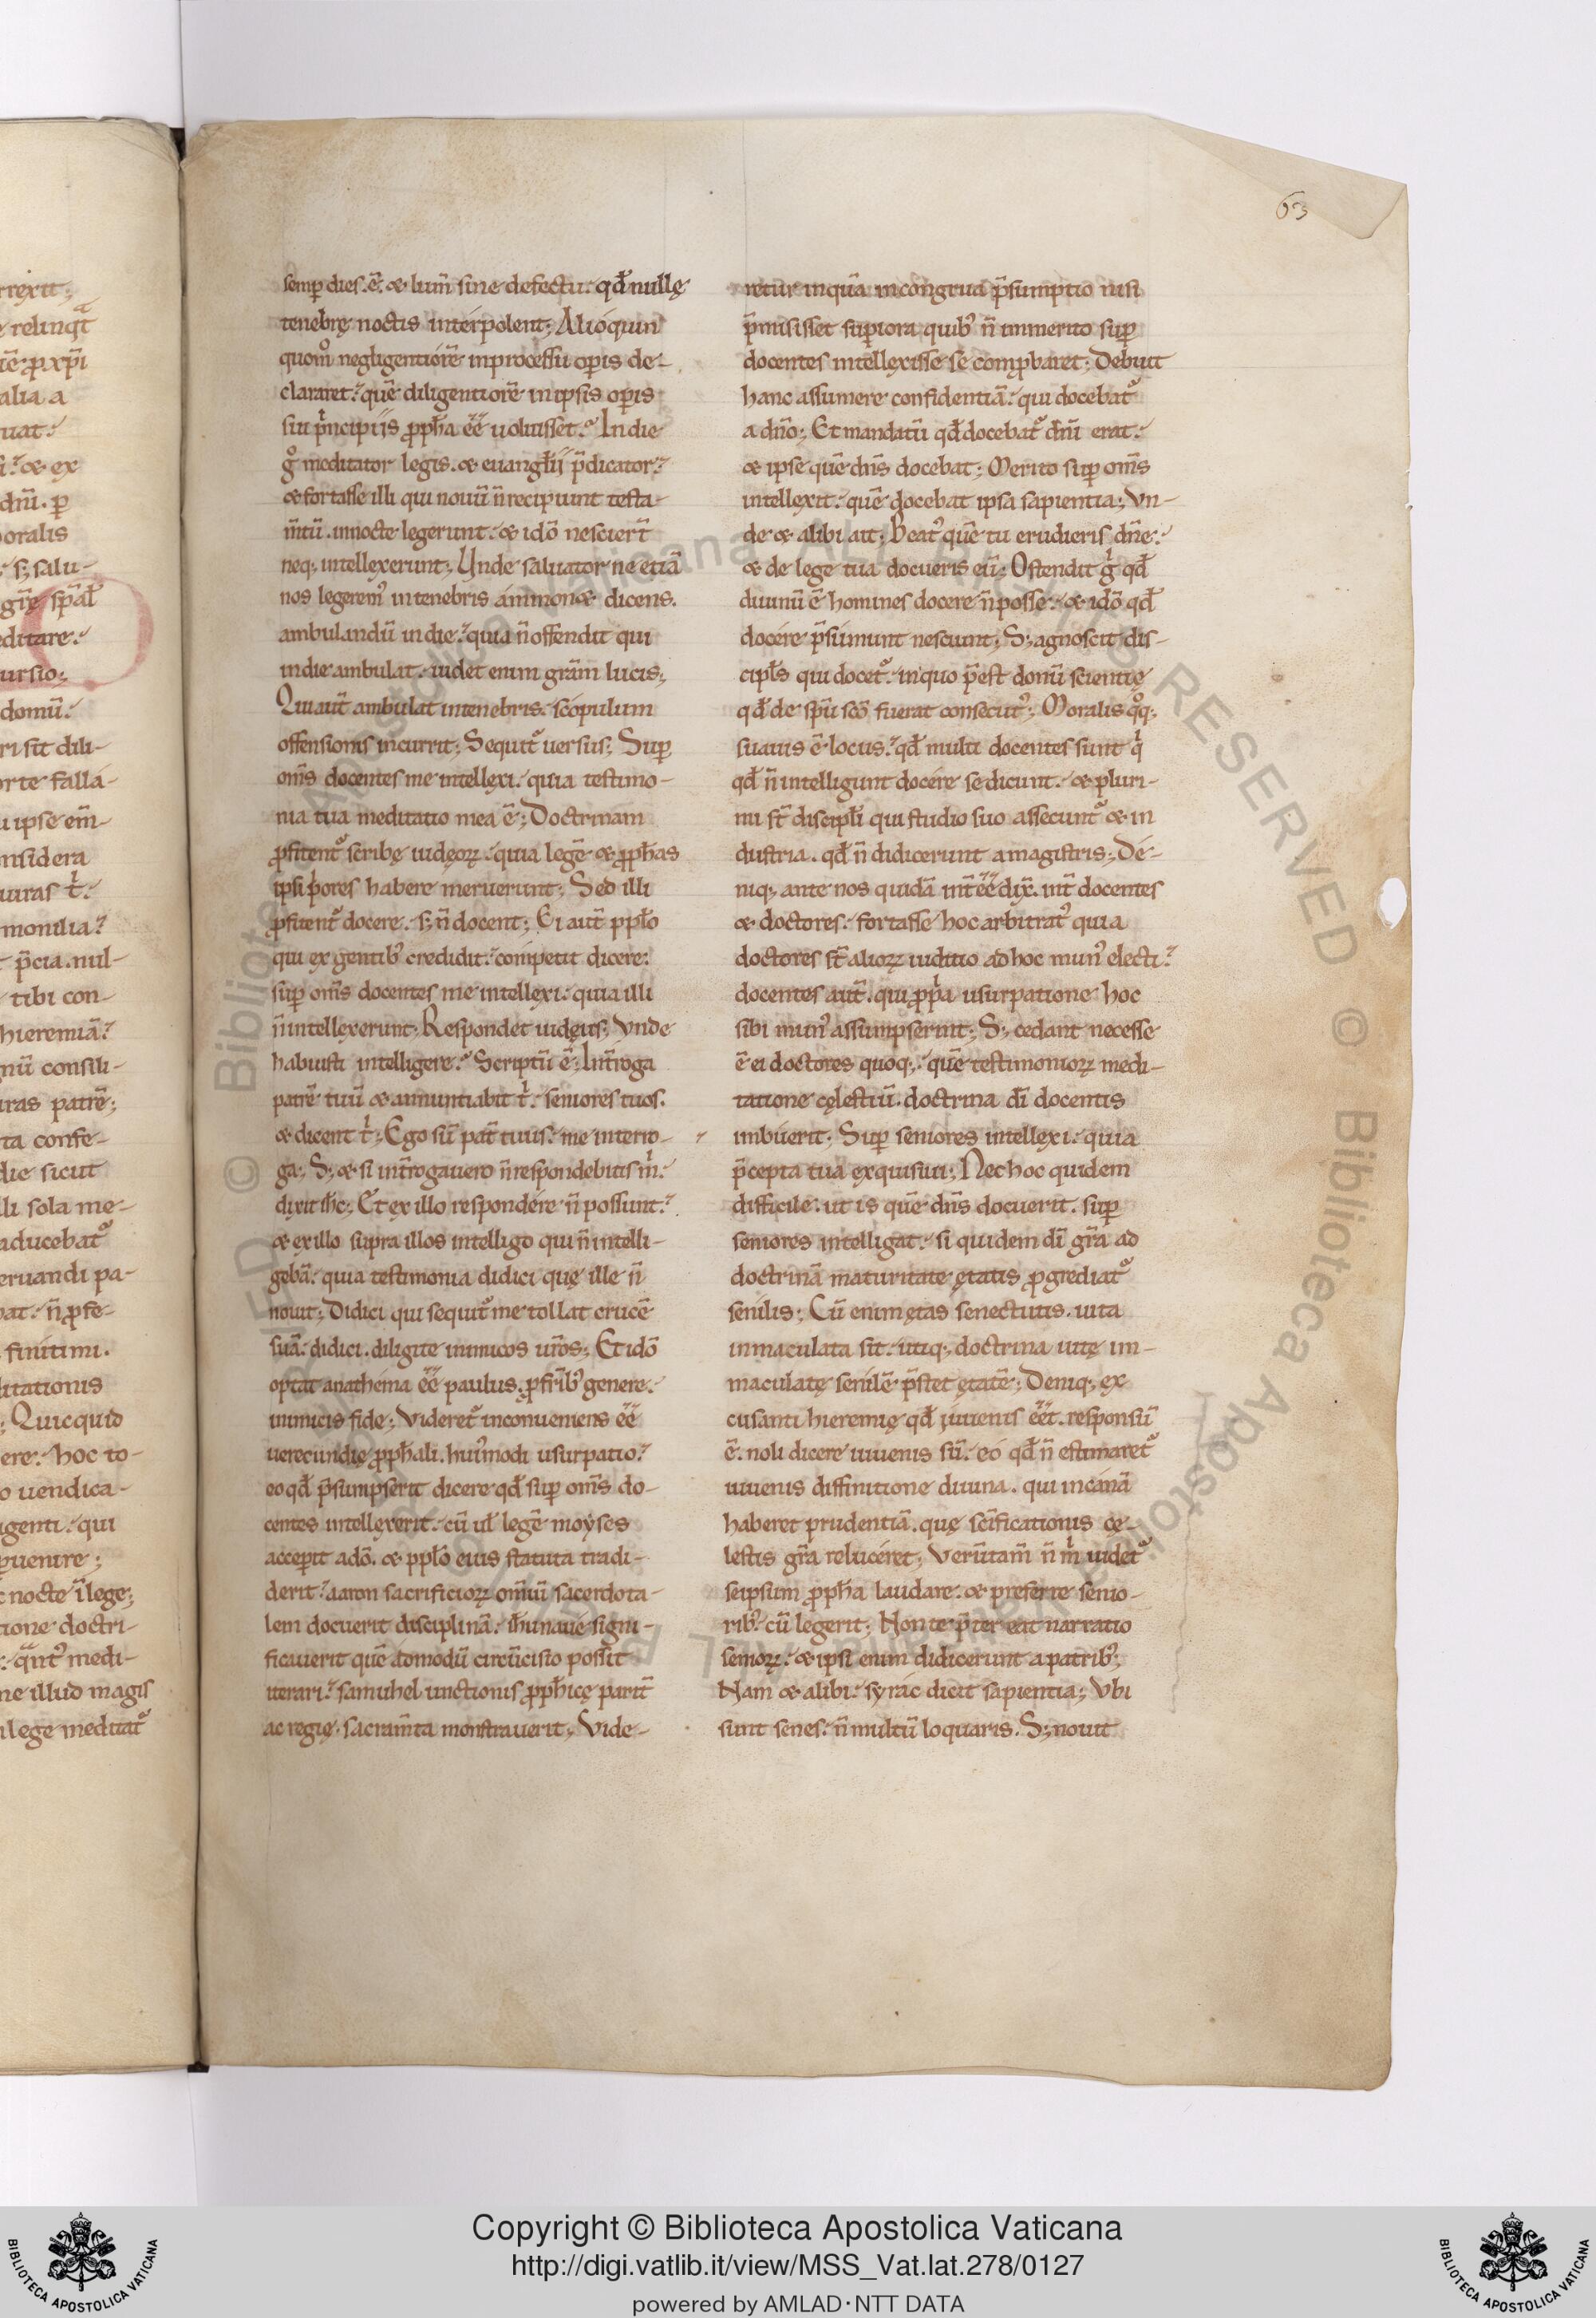 63
semꝑ dies .ē. & lum̄ sine defectu. qđ nullę
tenebrę noctis intérpolent; Alióquin
quom̊ negligentiorē inprocessu oꝑis de-
clararet? quē diligentiorē inipsis oꝑis
sui pͥncipiis ꝓpħa eē uoluisset? In die
gͦ meditator legis. & euangłij p̄dicator?
& fortasse illi qui nouū n̄ recipiunt testa-
m̄tū. innocte legerunt. & idō nescier̄t
neq; intellexerunt; Unde saluator ne etiā
nos legerem᾽ intenebris ámmon& dicens.
ambulandū indie? quia n̄ offendit qui
indie ambulat. uidet enim grām lucis;
Qui aut̄ ambulat intenebris. scópulum
offensionis incurrit; Sequit᷑ uersus; Suꝑ
om̄s docentes me intellexi. quia testimo-
nia tua meditatio mea ē; Doctrinam
ꝓfitent᷑ scribę iudęoꝝ. quia legē & ꝓpħas
ipsi pͥores habere meruerunt; Sed illi
ꝓfitent᷑ docere. s; n̄ docent; Ei aut̄ ppło
qui ex gentib᾽ credidit. competit dicere:
suꝑ om̄s docentes me intellexi. quia illi
n̄ intellexerunt; Respondet iudęus; Vnde
habuisti intelligere? Scriptū ē; Int̄roga
patrē tuū & annuntiabit tͥ. seniores tuos.
& dicent tͥ; Ego sū pat̄ tuus. me interro-
ga; S; & si int̄rogauero n̄ respondebitis mͥ.
dixit iħc; Et ex illo respondére n̄ possunt?
& exillo supra illos intelligo qui n̄ intelli-
gebā. quia testimonia didici quę ille n̄
nouit; Didici qui sequit᷑ me tollat crucē
suā. didici. diligite inimicos ur̄os; Et idō
optat anathema eē paulus. ꝓ fr̄ib᾽ genere.
inimicis fide; Videret᷑ inconueniens eē
uerecundię ꝓpħali. hui᾽modi usurpatio?
eo qđ p̄sumpserit dicere qđ suꝑ om̄s do-
centes intellexerit. cū uł legē moyses
acceꝑit adō. & ppło eius statuta tradi-
derit? aaron sacrificioꝝ om̄iū sacerdota-
lem docuerit disciplinā. iħu naué signi-
ficauerit quē admodū circūcisio possit
iterari? samuhel unctionis ꝓpħicę parit̄
ac regię. sacram̄ta monstrauerit; Vide-
retur inquā incongrua p̄sumptio nisi
p̄misisset suꝑiora quib᾽ n̄ immerito suꝑ
docentes intellexisse se comꝓbaret; Debuit
hanc assumere confidentiā. qui docebat᷑
a dn̄o; Et mandatū qđ docebat᷑ dn̄i erat.
& ipse quē dn̄s docebat; Merito suꝑ om̄s
intellexit. quē docebat ipsa sapientia; Vn-
de & alibi ait; Beat᾽ quē tu erudieris dn̄e.
& de lege tua docueris eū; Ostendit gͥ qđ
diuinū ē homines docere n̄ posse. & idō qđ
docére p̄sumunt nesciunt; S; agnoscit dis-
cipłs qui docet᷑. inquo p̄est donū scientię
qđ de sp̄u scō fuerat consecut᾽; Moralis qͦq;
suauis ē locus. qđ multi docentes sunt qͥ
qđ n̄ intelligunt docére se dicunt. & pluri-
mi st̄ discipłi qui studio suo assecunt᷑ & in
dustria. qđ n̄ didicerunt amagistris; Dé-
niq; ante nos quidā int̄eē dix̄. int̄ docentes
& doctores. fortasse hoc arbitrat᾽ quia
doctores st̄ alioꝝ iuditio ad hoc mun᾽ electi?
docentes aut̄. qui ꝓpͥa usurpatione hoc
sibi mun᾽ assumpserint; S; cedant necesse
ē ei doctores quoq;. quē testimonioꝝ medi-
tatione cęlestiū. doctrina dī docentis
imbúerit; Suꝑ seniores intellexi. quia
p̄cepta tua exquisiui; Nec hoc quidem
difficile. ut is quē dn̄s docuerit. suꝑ
seniores intelligat. si quidem dī gr̄a ad
doctrinā maturitate ętatis ꝓgrediat᷑
senilis; Cū enim ętas senectutis. uita
inmaculata sit. utiq; doctrina uitę im-
maculatę senilē p̄stet ętatē; Deniq; ex
cusanti hieremię qđ iuuenis eēt. responsū
ē. noli dicere iuuenis sū. eó qđ n̄ estimaret᷑
iuuenis diffinitione diuina. qui incānā
haberet prudentiā. quę scīficationis cę-
lestis gr̄a relucéret; Verūtam̄ n̄ mͥ uidet᷑
seipsum ꝓpħa laudare. & preferre senio-
rib᾽. cū legerit; Non te p̄ter eat narratio
senioꝝ. & ipsi enim didicerunt apatrib᾽;
Nam & alibi. syrác dicit sapientia; Vbi
sunt senes. n̄ multū loquaris. S; nouit
Copyright © Biblioteca Apostolica Vaticana
http://digi.vatlib.it/view/MSS_Vat.lat.278/0127
powered by AMLAD·NTT DATA
BIBLIOTECA APOSTOLICA VATICANA
BIBLIOTECA APOSTOLICA VATICANA